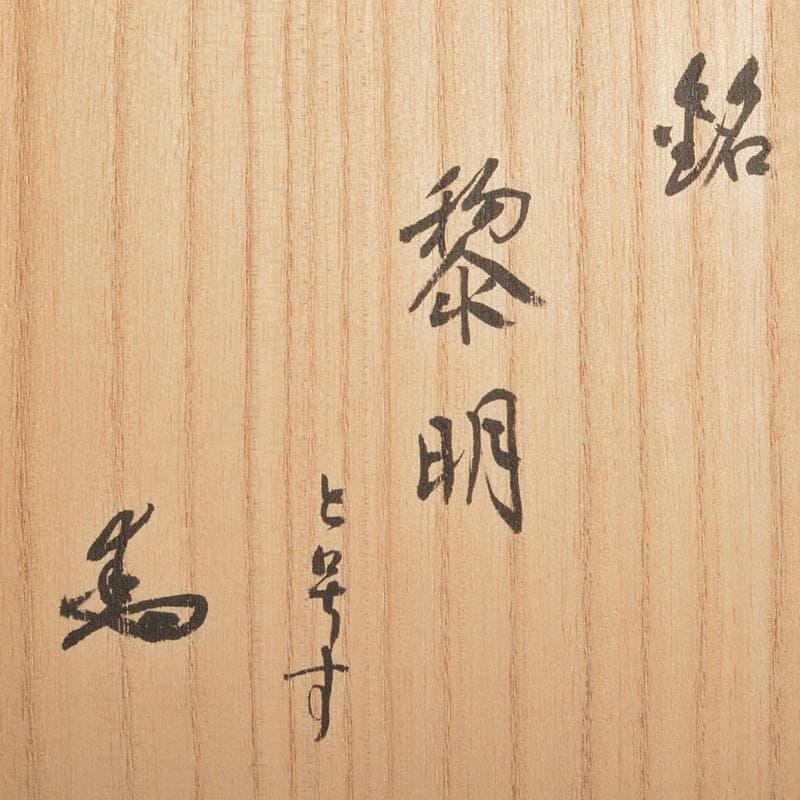 銘
黎明
と号す